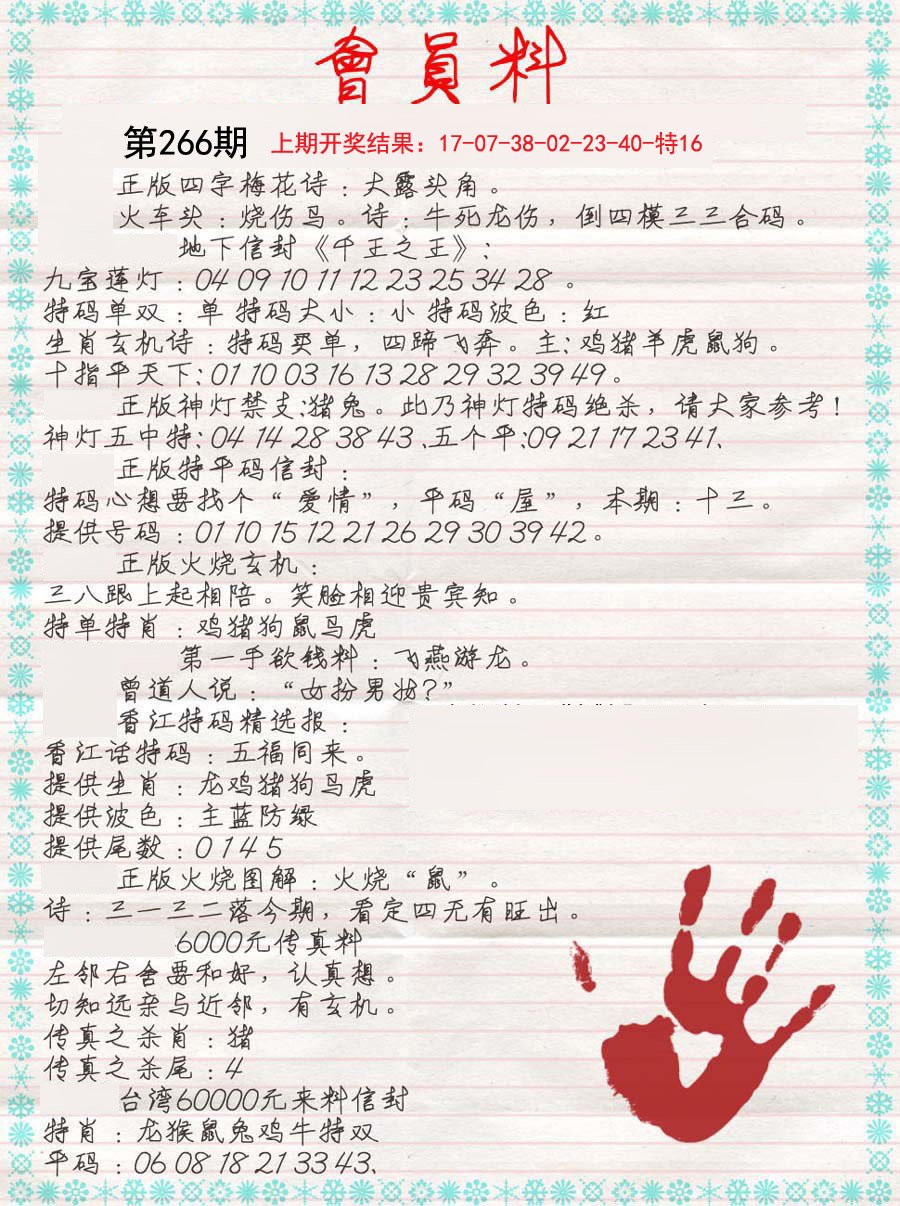 會員料
第266期 上期开奖结果：17-07-38-02-23-40-特16
正版四字梅花诗：大露头角。
火车头：烧伤鸟。诗：牛死龙伤，倒四模三三合码。
地下信封《千王之王》：
九宝莲灯：04 09 10 11 12 23 25 34 28 。
特码单双：单 特码大小：小 特码波色：红
生肖玄机诗：特码买单，四蹄飞奔。主：鸡猪羊虎鼠狗。
十指平天下：01 10 03 16 13 28 29 32 39 49。
正版神灯禁支：猪兔。此乃神灯特码绝杀，请大家参考！
神灯五中特：04 14 28 38 43、五个平：09 21 17 23 41、
正版特平码信封：
特码心想要找个“爱情”，平码“屋”，本期：十三。
提供号码：01 10 15 12 21 26 29 30 39 42。
正版火烧玄机：
三八跟上起相陪。笑脸相迎贵宾知。
特单特肖：鸡猪狗鼠马虎
第一手欲钱料：飞燕游龙。
曾道人说：“女扮男妆？”
香江特码精选报：
香江话特码：五福同来。
提供生肖：龙鸡猪狗马虎
提供波色：主蓝防绿
提供尾数：0 1 4 5
正版火烧图解：火烧“鼠”。
诗：三一三二落今期，看定四无有旺出。
6000元传真料
左邻右舍要和好，认真想。
切知远亲与近邻，有玄机。
传真之杀肖：猪
传真之杀尾：4
台湾60000元来料信封
特肖：龙猴鼠兔鸡牛特双
平码：06 08 18 21 33 43、